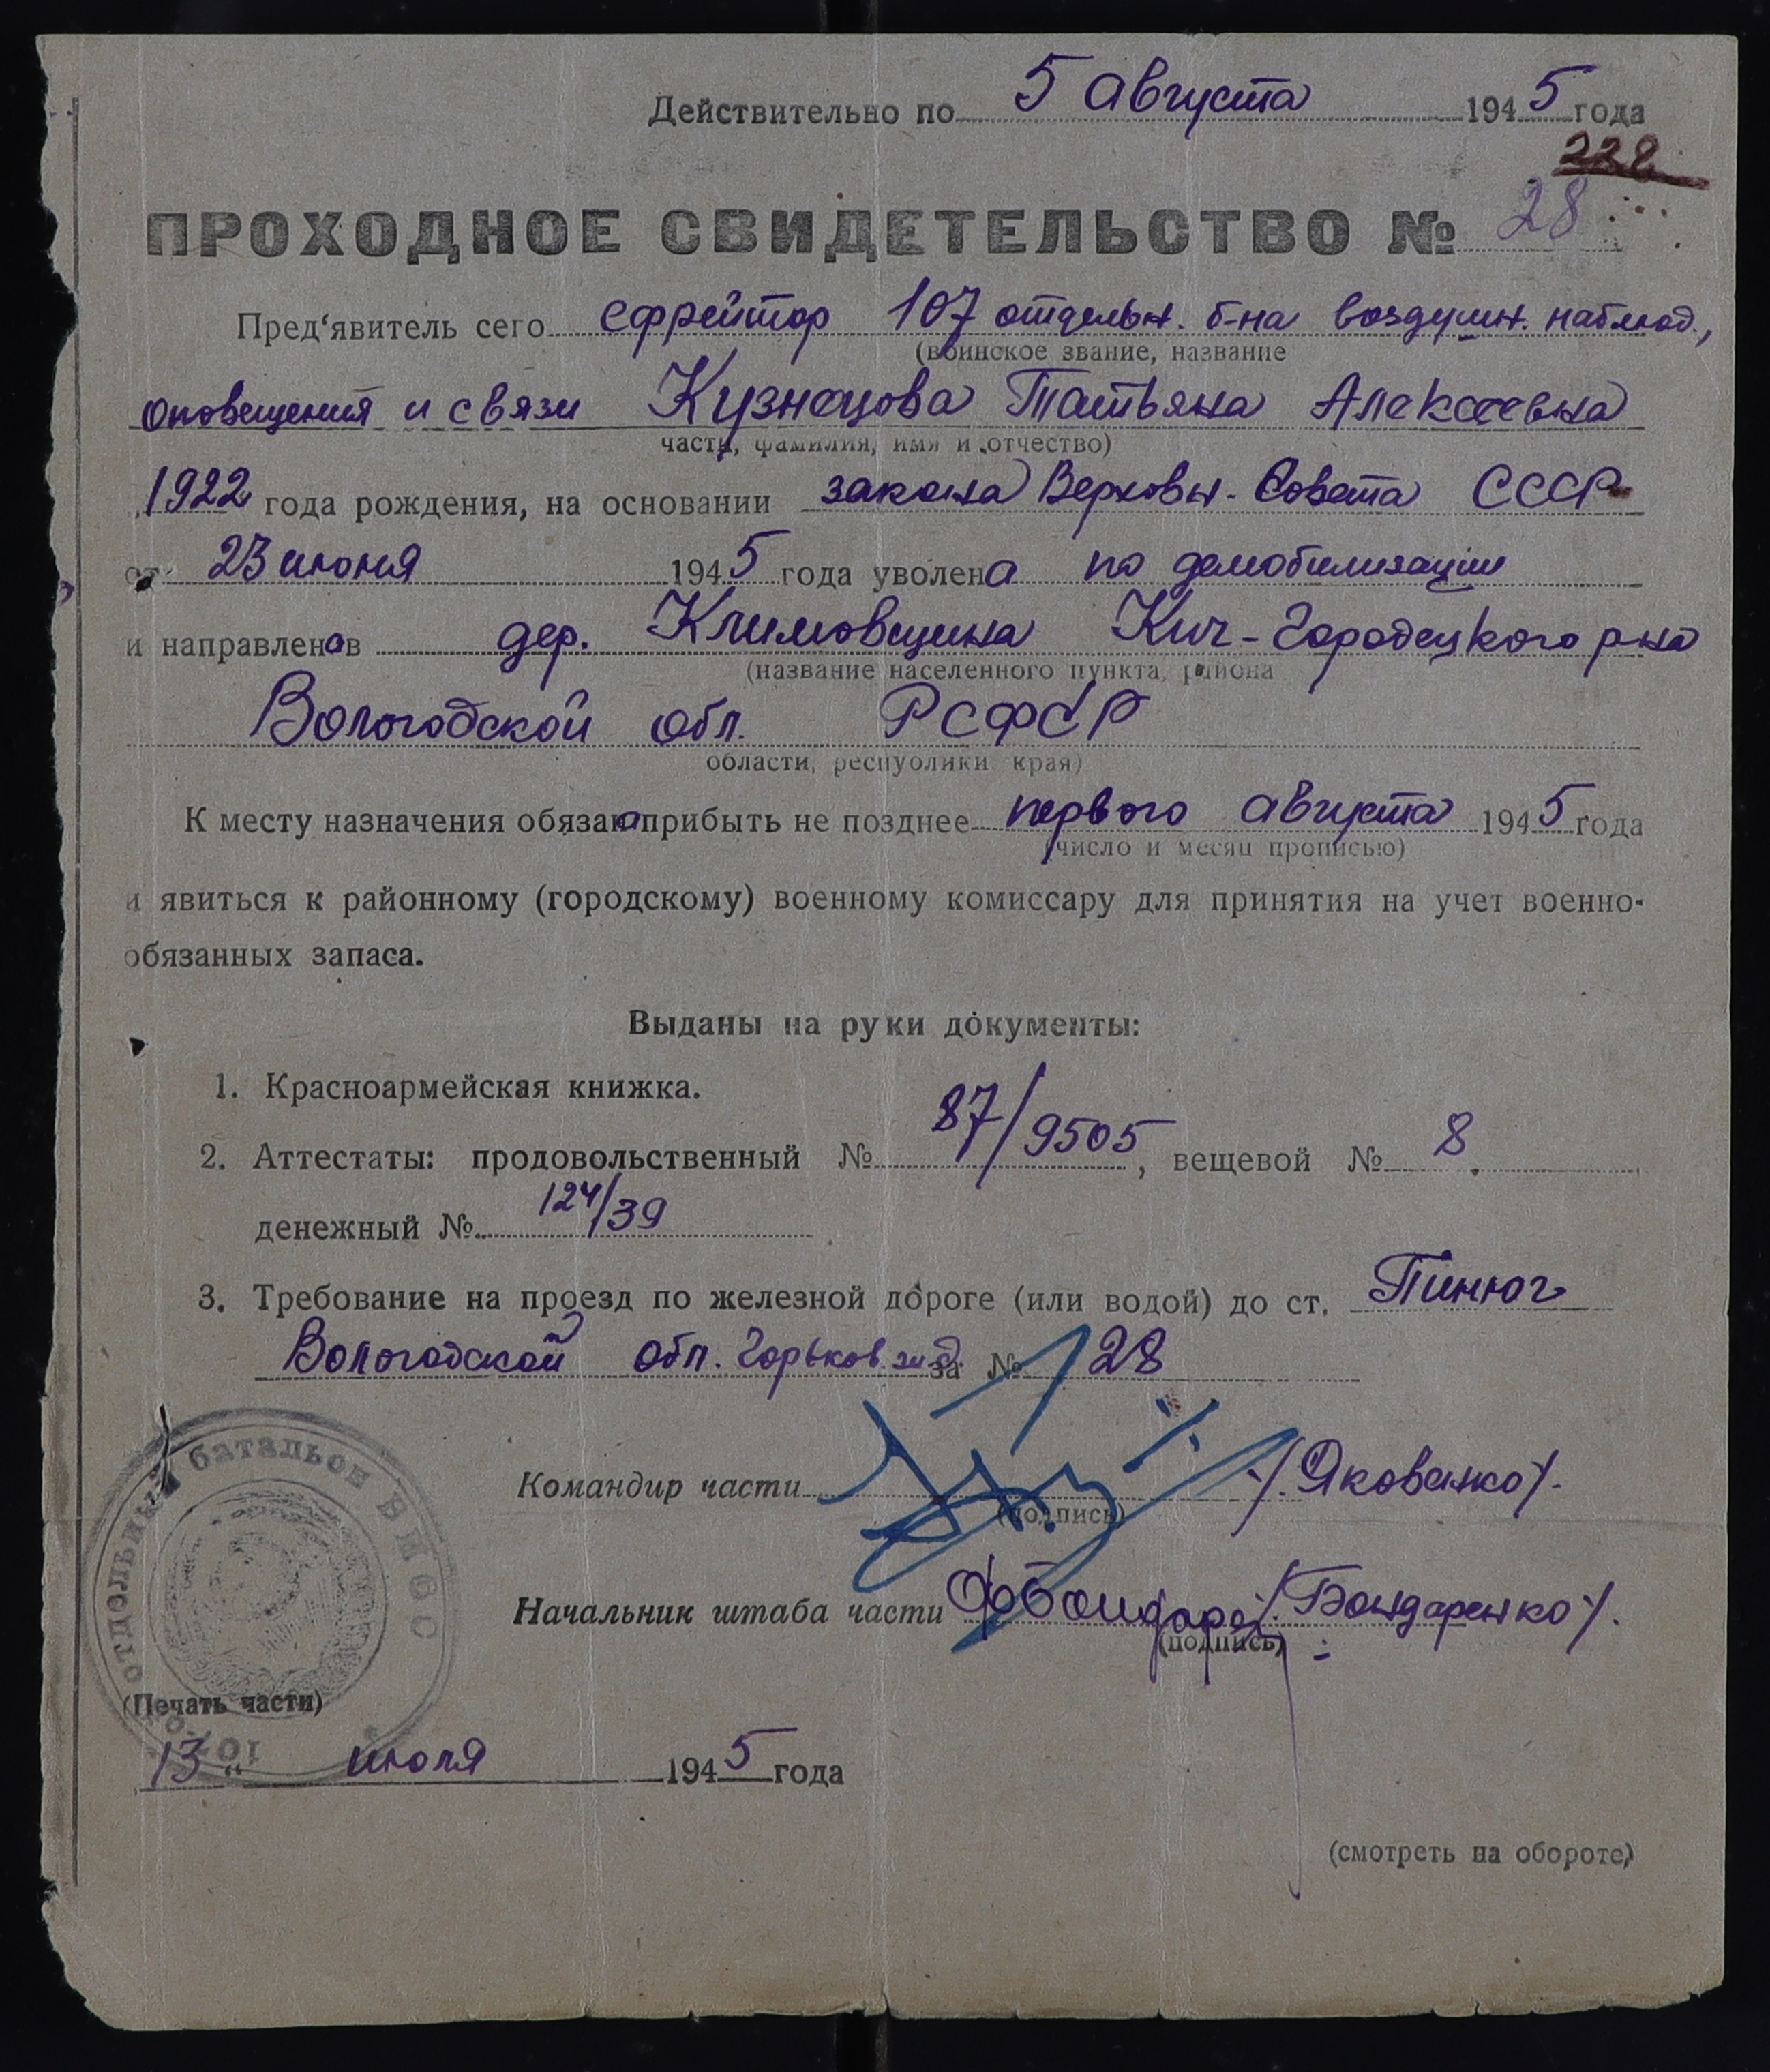 Действительно по 5 августа 1945 года
228
ПРОХОДНОЕ СВИДЕТЕЛЬСТВО № 28
Пред'явитель сего ефрейтор 107 отдельн. б-на воздушн. наблюд.,
(воинское звание, название
оповещения и связи Кузнецова Татьяна Алексеевна
части, фамилия, имя и отчество)
1922 года рождения, на основании закона Верховн. Совета СССР
от 23 июня 1945 года уволена по демобилизации
и направлена в дер. Климовщина Кич-Городецкого р-на
(название населенного пункта, района
Вологодской обл. РСФСР
области, республики края)
К месту назначения обязана прибыть не позднее первого августа 1945 года
(число и месяц прописью)
и явиться к районному (городскому) военному комиссару для принятия на учет военно-
обязанных запаса.
Выданы на руки документы:
1. Красноармейская книжка.
2. Аттестаты: продовольственный № 87/9505, вещевой № 8.
денежный № 124/39
3. Требование на проезд по железной дороге (или водой) до ст. Пинюг
Вологодской обл. Горьков. ж.д. за № 28
Командир части /Яковенко/.
(подпись)
Начальник штаба части /Бондаренко/.
(подпись)
отдельный батальон ВНОС
107
(Печать части)
13 " июля 1945 года
(смотреть на обороте)